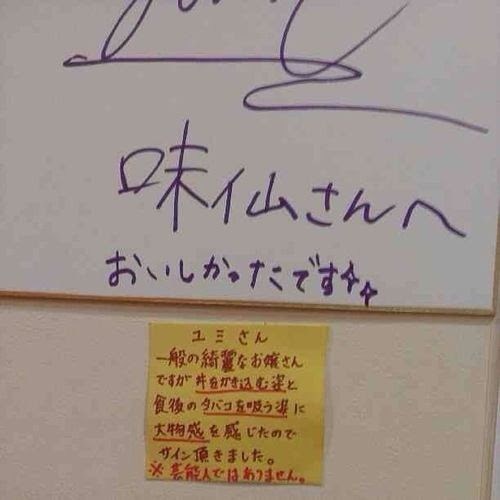 味仙さんへ
おいしかったです
ユミさん
一般の綺麗なお嬢さん
ですが丼をかき込む姿と
食後のタバコを吸う姿に
大物感を感じたので
サイン頂きました。
※芸能人ではありません。